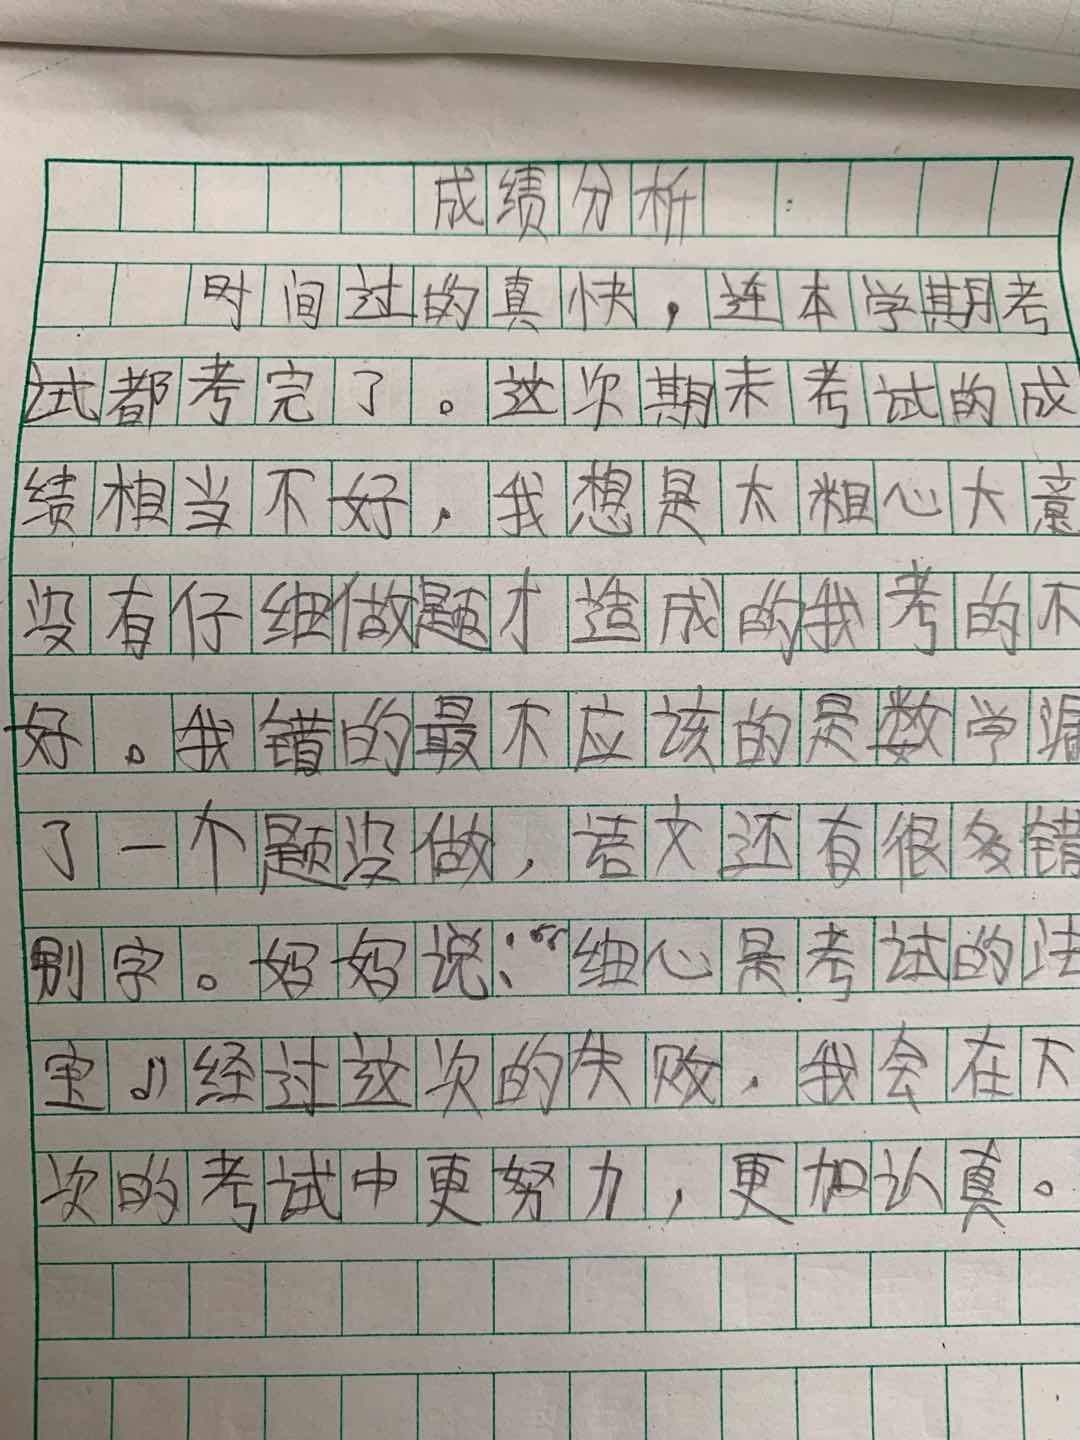 成绩分析
时间过的真快，连本学期考
试都考完了。这次期末考试的成
绩相当不好，我想是太粗心大意
没有仔细做题才造成的我考的不
好。我错的最不应该的是数学漏
了一个题没做，语文还有很多错
别字。妈妈说：“细心是考试的法
宝。”经过这次的失败，我会在下
次的考试中更努力，更加认真。